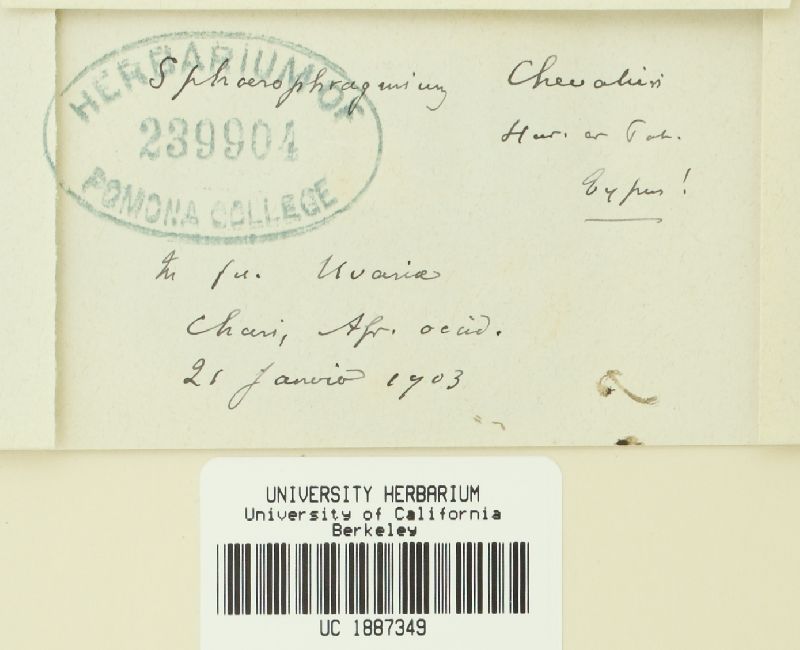 HERBARIUM OF
239904
POMONA COLLEGE
Sphaerophragmium Chevalieri
Har. et Pat.
Typus!
In fol. Uvariae
Chari, Afr. occid.
21 Janvier 1903
UNIVERSITY HERBARIUM
University of California
Berkeley
UC 1887349